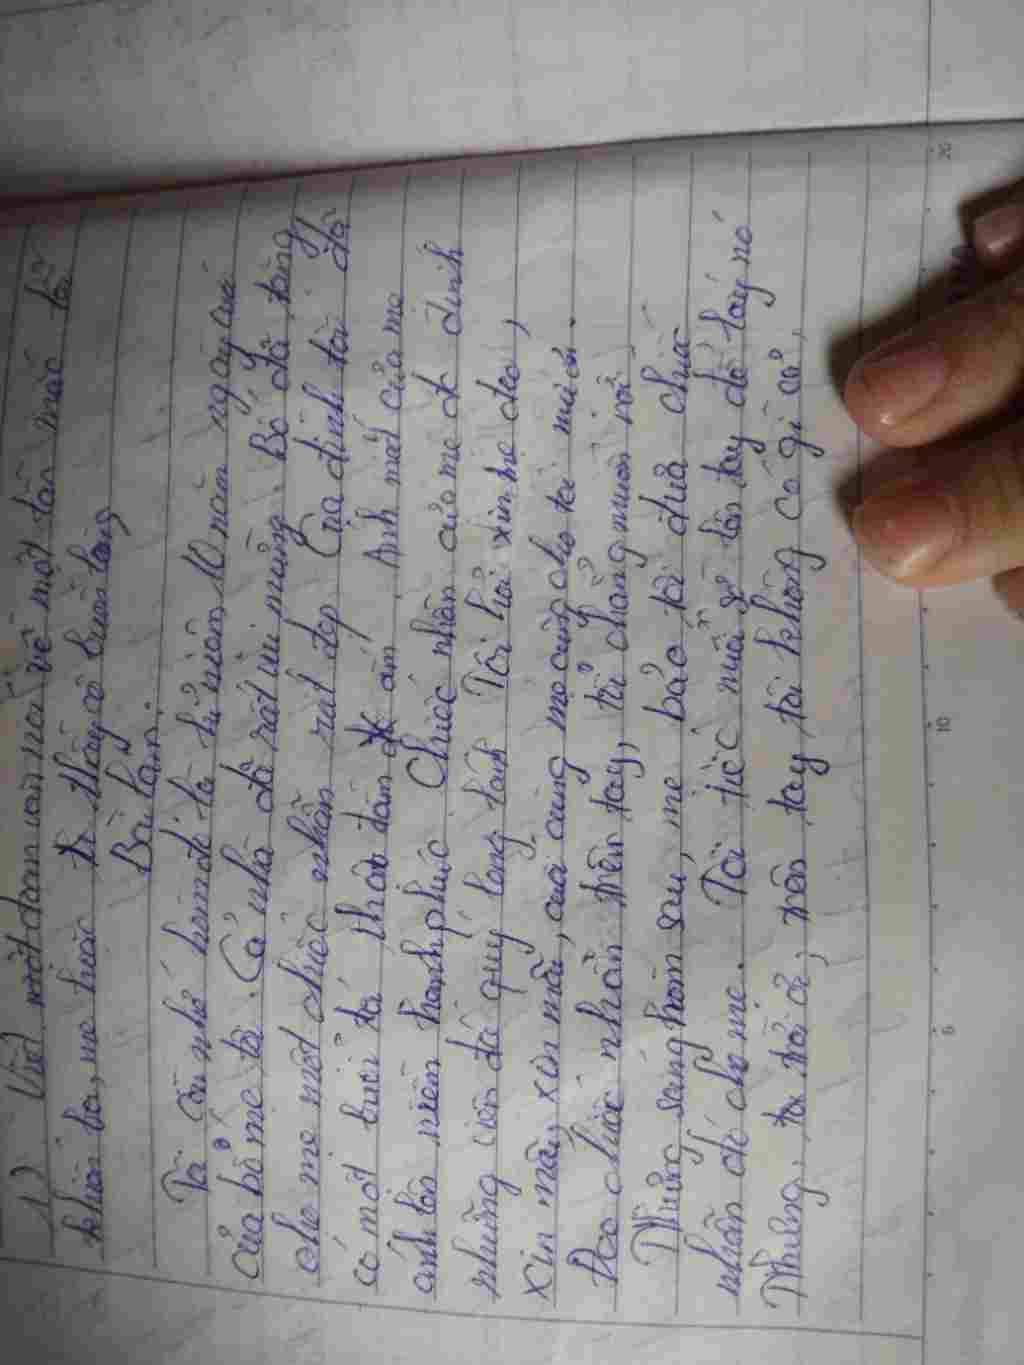 1) Viết một đoạn văn nói về một lần mắc lỗi
khiến ba, mẹ hoặc thầy cô buồn lòng
Bài làm:
Tôi còn nhớ hôm đó là kỉ niệm 10 năm ngày cưới
của bố mẹ tôi. Cả nhà đã rất vui mừng. Bố đã tặng
cho mẹ một chiếc nhẫn rất đẹp. Gia đình tôi đã
có một buổi tối thật đầm ấm, ánh mắt của mẹ
ánh lên niềm hạnh phúc. Chiếc nhẫn của mẹ đc đính
những viên đá quý long lanh. Tôi hỏi xin mẹ đeo,
xin mãi, xin mãi, cuối cùng mẹ cũng cho tôi mượn.
Đeo chiếc nhẫn trên tay, tôi chẳng muốn rời
Nhưng sáng hôm sau, mẹ bảo tôi đưa chiếc
nhẫn đó cho mẹ. Tôi tiếc nuối sờ lên tay để lấy nó
Nhưng, tôi trả ơi, trên tay tôi không có gì cả,